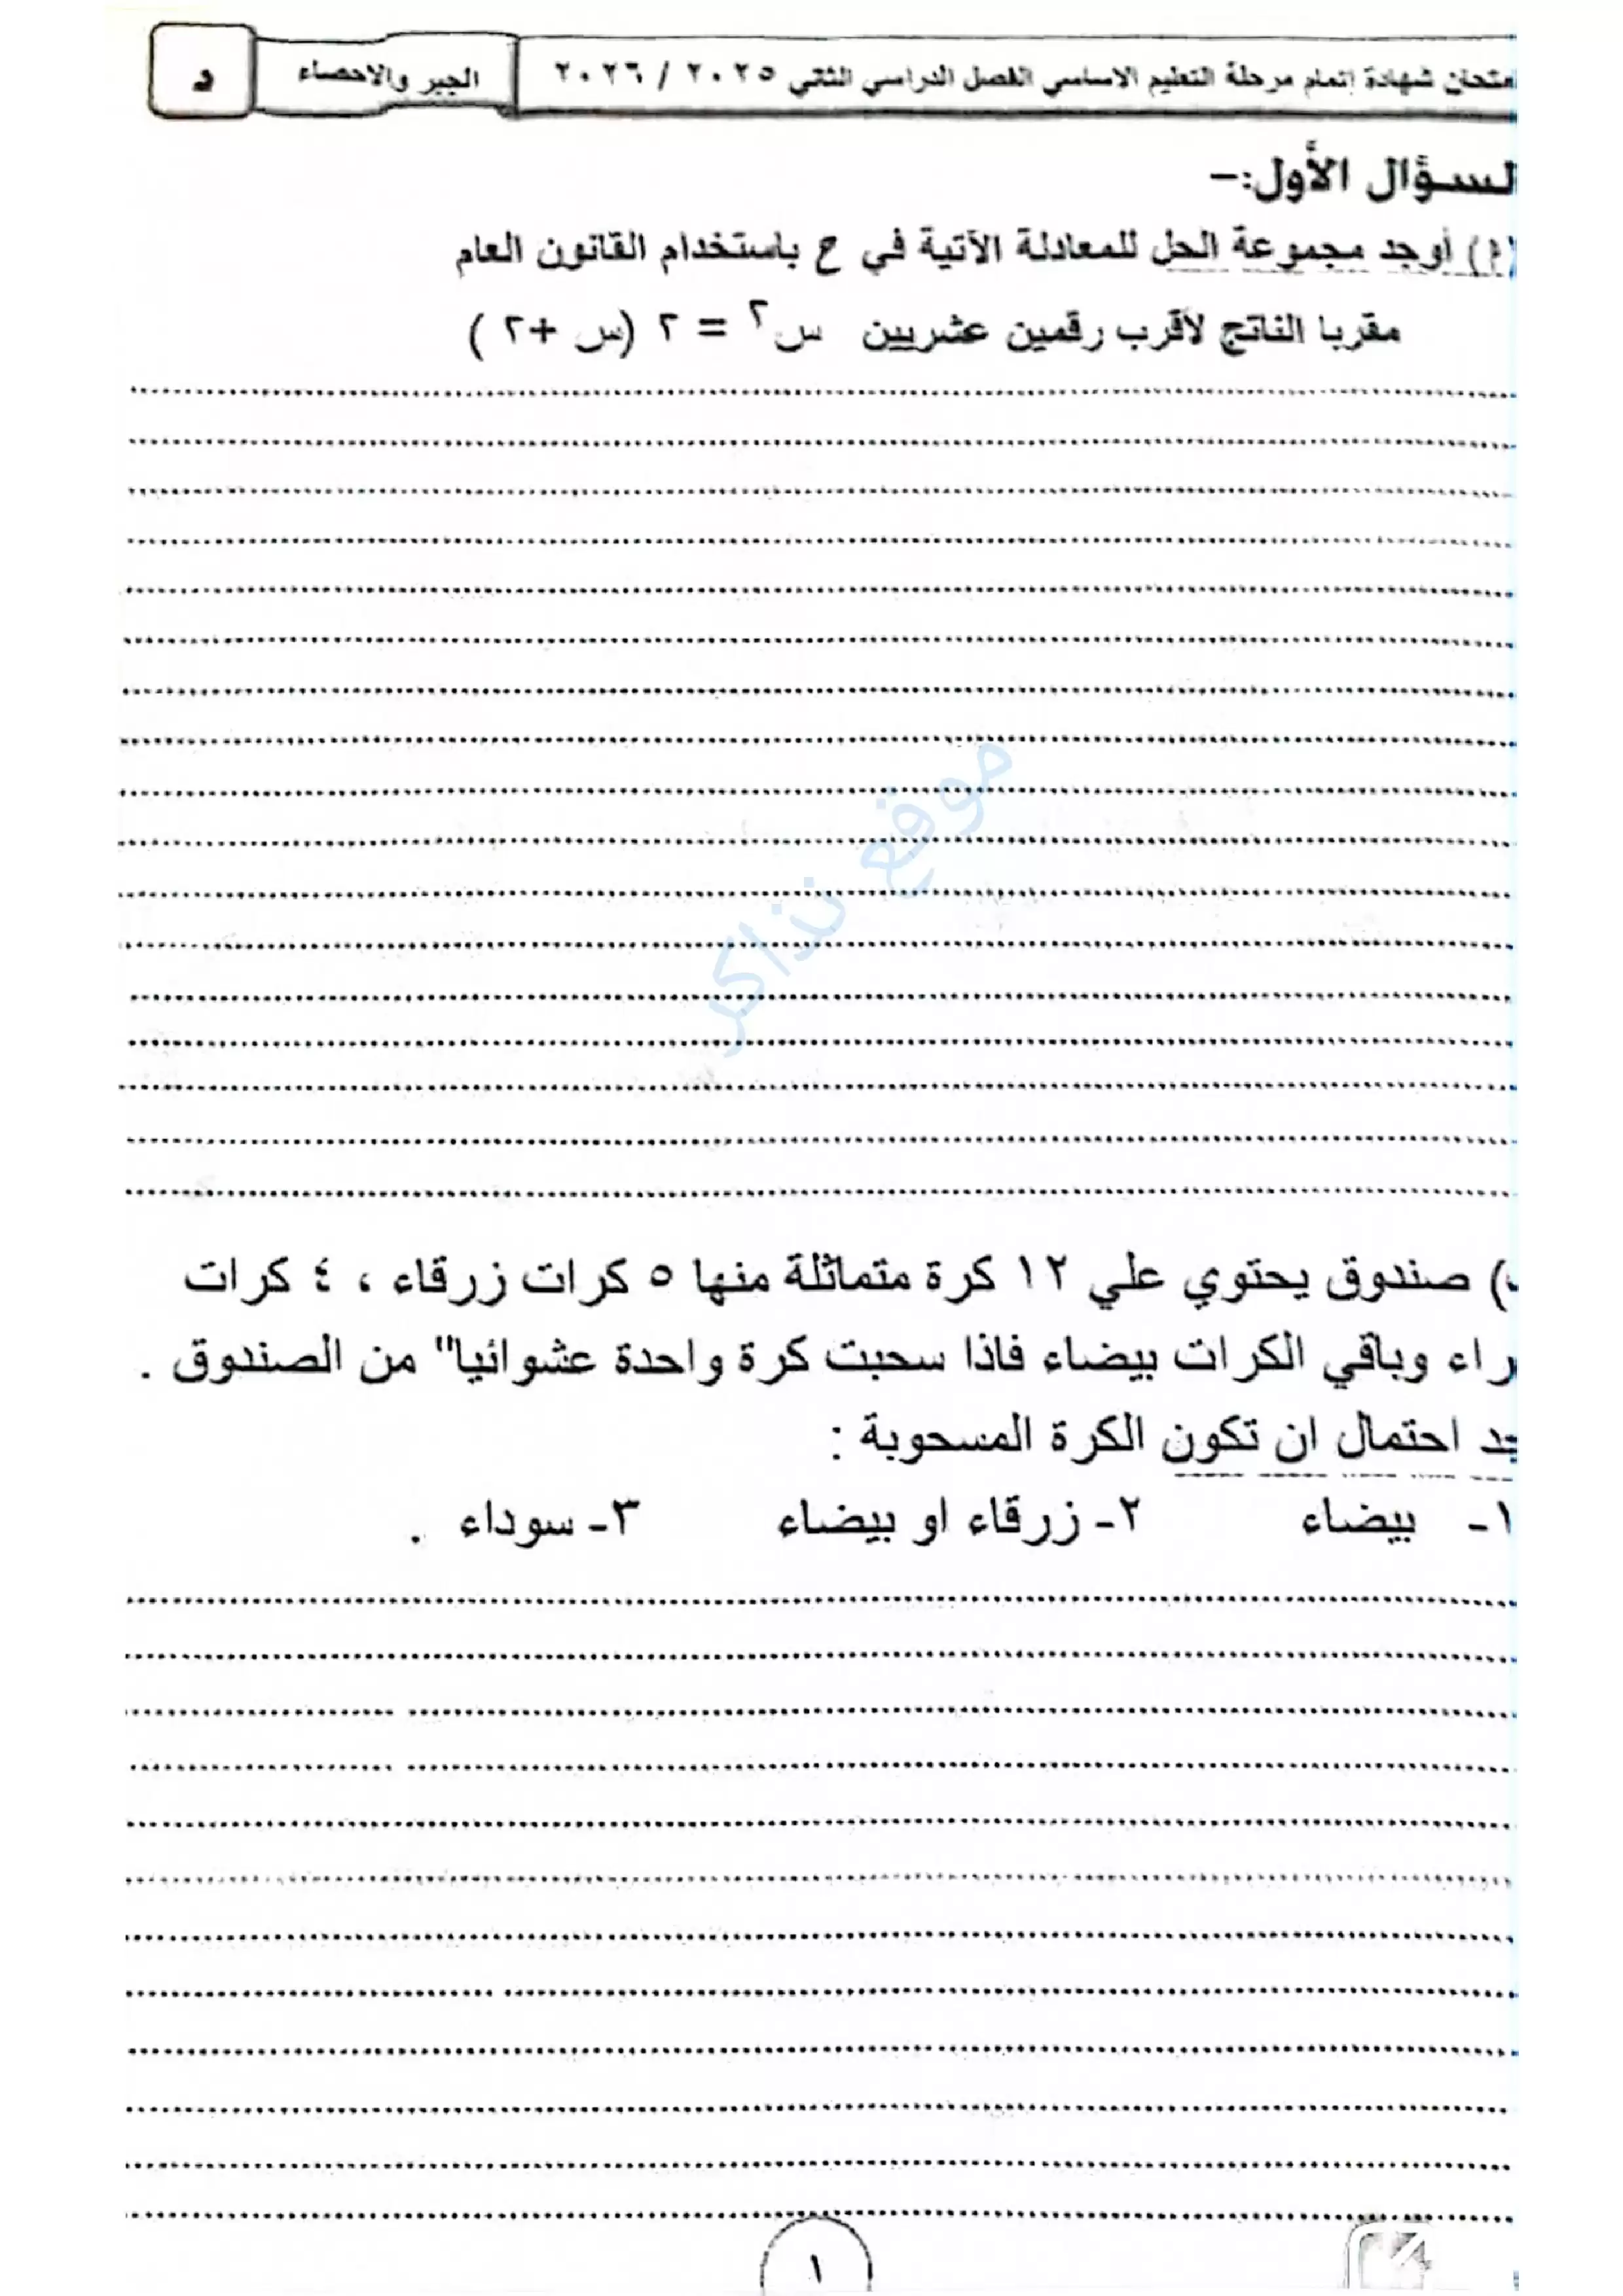 متحان شهادة إتمام مرحلة التعليم الاساسي الفصل الدراسي الثاني ٢٠٢٥ / ٢٠٢٦
الجبر والاحصاء
د
لسؤال الأول:-
(أ) أوجد مجموعة الحل للمعادلة الآتية في ح باستخدام القانون العام
مقربا الناتج لأقرب رقمين عشريين س٢ = ٢ (س + ٢)
موقع نذاكر
) صندوق يحتوي علي ١٢ كرة متماثلة منها ٥ كرات زرقاء ، ٤ كرات
راء وباقي الكرات بيضاء فاذا سحبت كرة واحدة عشوائيا" من الصندوق .
جد احتمال ان تكون الكرة المسحوبة :
١- بيضاء ٢- زرقاء او بيضاء ٣- سوداء .
١